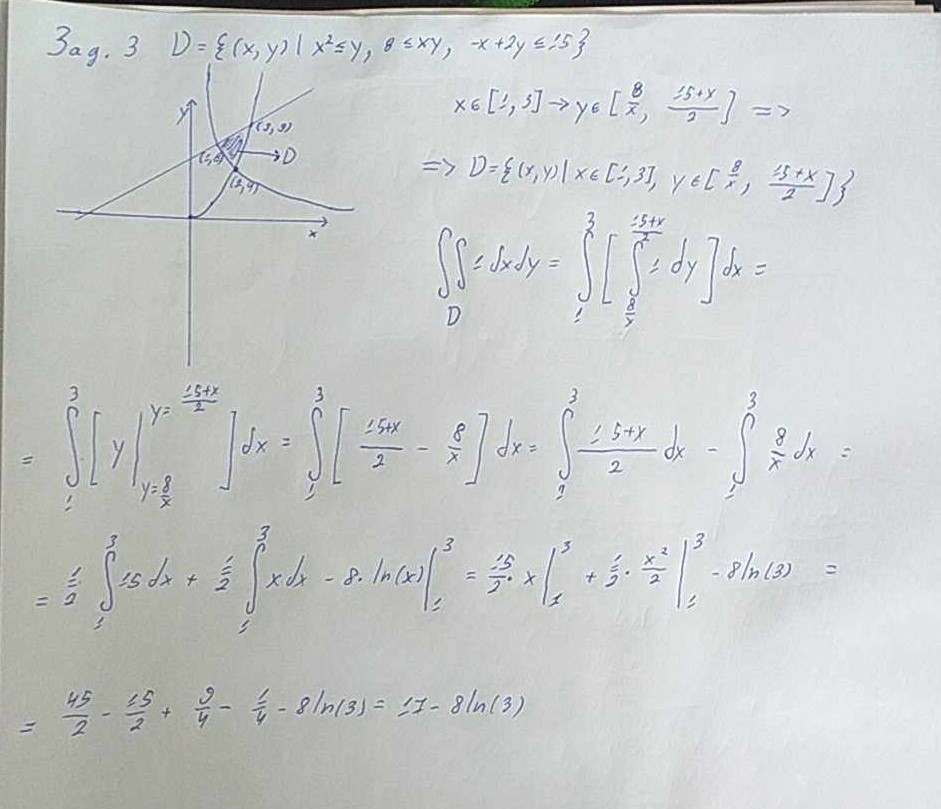 Зад. 3 D = {(x, y) | x² ≤ y, 8 ≤ xy, -x + 2y ≤ 15}
y
(3,9)
(1,8)
→ D
(2,4)
x
x ∈ [1, 3] → y ∈ [8/x, (15+x)/2] =>
=> D = {(x, y) | x ∈ [1, 3], y ∈ [8/x, (15+x)/2]}
∬_D 1 dxdy = ∫_1^3 [∫_{8/x}^{(15+x)/2} 1 dy] dx =
= ∫_1^3 [y |_{y=8/x}^{y=(15+x)/2}] dx = ∫_1^3 [(15+x)/2 - 8/x] dx = ∫_1^3 (15+x)/2 dx - ∫_1^3 8/x dx =
= 1/2 ∫_1^3 15 dx + 1/2 ∫_1^3 x dx - 8 · ln(x) |_1^3 = 15/2 · x |_1^3 + 1/2 · x²/2 |_1^3 - 8 ln(3) =
= 45/2 - 15/2 + 9/4 - 1/4 - 8 ln(3) = 17 - 8 ln(3)